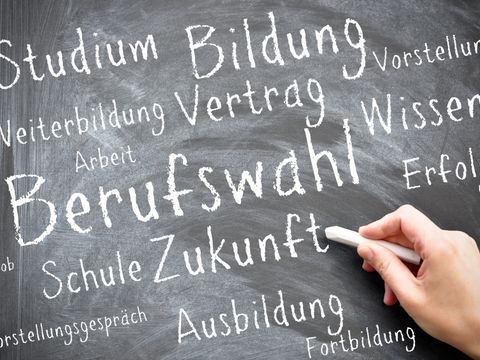 Studium Bildung Vorstellun
Weiterbildung Vertrag Wissen
Arbeit
Berufswahl Erfolg
ob
Schule Zukunft
orstellungsgespräch Ausbildung
Fortbildung